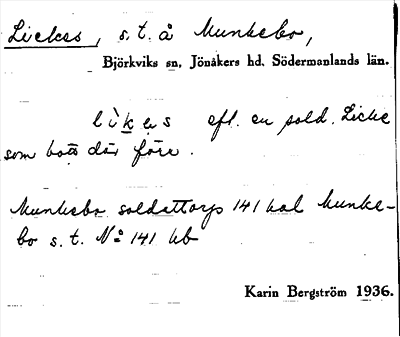 Lickes, s.t. å Munkebo,
Björkviks sn, Jönåkers hd, Södermanlands län.
lìkes efl. en sold. Licke
som bott där före.
Munkebo soldattorp 141 kal Munke-
bo s.t. No 141 kb
Karin Bergström 1936.